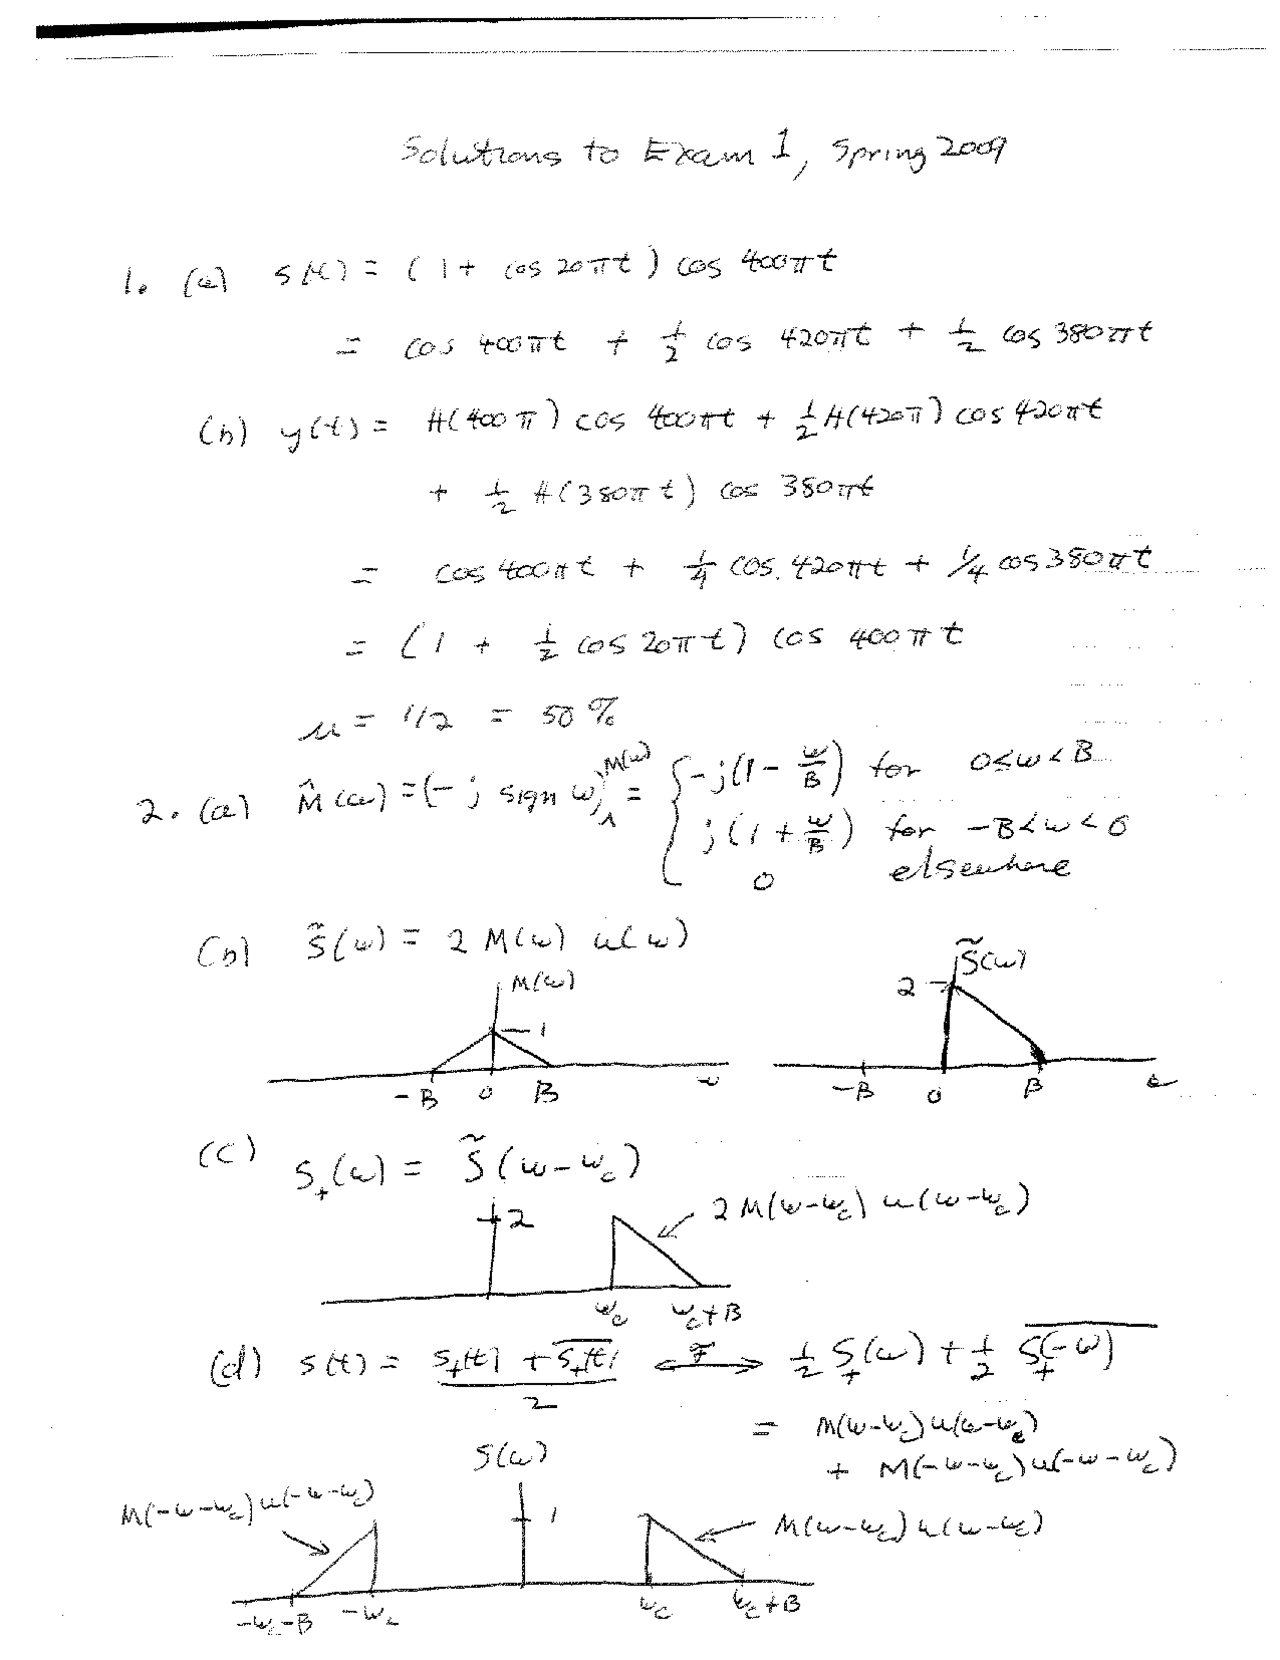 Solutions to Exam 1, Spring 2009
1. (a) s(t) = (1 + cos 20πt) cos 400πt
= cos 400πt + 1/2 cos 420πt + 1/2 cos 380πt
(b) y(t) = H(400π) cos 400πt + 1/2 H(420π) cos 420πt
+ 1/2 H(380πt) cos 380πt
= cos 400πt + 1/4 cos 420πt + 1/4 cos 380πt
= (1 + 1/2 cos 20πt) cos 400πt
μ = 1/2 = 50%
2. (a) M̂(ω) = (-j sign ω) M(ω) = { -j(1 - ω/B) for 0≤ω<B
j(1 + ω/B) for -B<ω<0
0 elsewhere
(b) S̃(ω) = 2 M(ω) u(ω)
M(ω) 1 -B 0 B ω
S̃(ω) 2 -B 0 B ω
(c) S₊(ω) = S̃(ω-ω_c)
2 2M(ω-ω_c) u(ω-ω_c)
ω_c ω_c+B
(d) s(t) = (s₊(t) + \overline{s₊(t)})/2 ⟷ℱ 1/2 S₊(ω) + 1/2 \overline{S₊(-ω)}
= M(ω-ω_c)u(ω-ω_c)
+ M(-ω-ω_c)u(-ω-ω_c)
S(ω)
M(-ω-ω_c)u(-ω-ω_c) 1 M(ω-ω_c)u(ω-ω_c)
-ω_c-B -ω_c ω_c ω_c+B